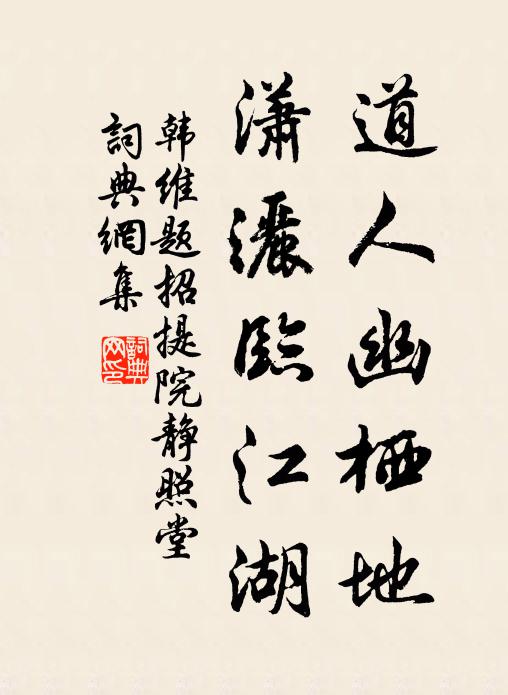 道人幽栖地
瀟灑臨江湖
韩維题招提院静照堂
詞典網集
詞典网印